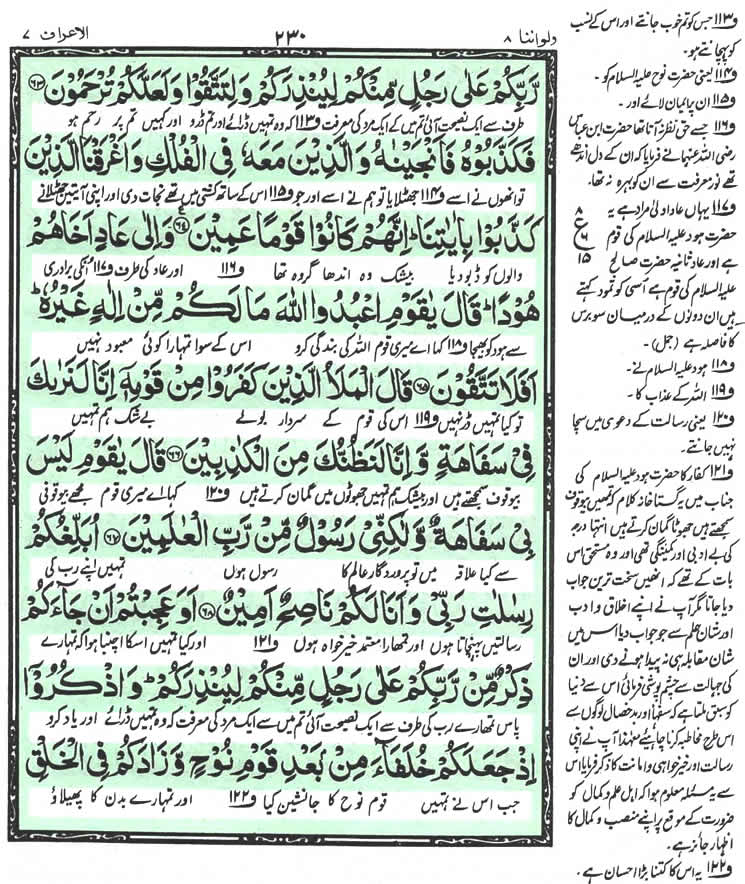 ولواننا ٨
٢٣٠
الاعراف ٧
رَّبِّكُمْ عَلٰى رَجُلٍ مِّنْكُمْ لِيُنْذِرَكُمْ وَلِتَتَّقُوْا وَلَعَلَّكُمْ تُرْحَمُوْنَ ﴿۶۳﴾
طرف سے ایک نصیحت آئی تم میں کے ایک مرد کی معرفت و۱۱۳ کہ وہ تمہیں ڈرائے اور تم ڈرو اور کہیں تم پر رحم ہو
فَكَذَّبُوْهُ فَاَنْجَيْنٰهُ وَالَّذِيْنَ مَعَهٗ فِى الْفُلْكِ وَاَغْرَقْنَا الَّذِيْنَ
تو انھوں نے اسے و۱۱۴ جھٹلایا تو ہم نے اسے اور جو و۱۱۵ اس کے ساتھ کشتی میں تھے نجات دی اور اپنی آیتیں جھٹلانے
كَذَّبُوْا بِاٰيٰتِنَا ؕ اِنَّهُمْ كَانُوْا قَوْمًا عَمِيْنَ ﴿۶۴﴾ وَاِلٰى عَادٍ اَخَاهُمْ
والوں کو ڈبو دیا بیشک وہ اندھا گروہ تھا و۱۱۶ اور عاد کی طرف و۱۱۷ انکی برادری
هُوْدًا ؕ قَالَ يٰقَوْمِ اعْبُدُوا اللّٰهَ مَا لَكُمْ مِّنْ اِلٰهٍ غَيْرُهٗ ؕ
سے ہود کو بھیجا و۱۱۸ کہا اے میری قوم اللہ کی بندگی کرو اس کے سوا تمہارا کوئی معبود نہیں
اَفَلَا تَتَّقُوْنَ ﴿۶۵﴾ قَالَ الْمَلَاُ الَّذِيْنَ كَفَرُوْا مِنْ قَوْمِهٖۤ اِنَّا لَنَرٰىكَ
تو کیا تمہیں ڈر نہیں و۱۱۹ اس کی قوم کے سردار بولے بے شک ہم تمہیں
فِىْ سَفَاهَةٍ وَّاِنَّا لَنَظُنُّكَ مِنَ الْكٰذِبِيْنَ ﴿۶۶﴾ قَالَ يٰقَوْمِ لَيْسَ
بیوقوف سمجھتے ہیں اور بیشک ہم تمہیں جھوٹوں میں گمان کرتے ہیں و۱۲۰ کہا اے میری قوم مجھے بیوقوفی
بِىْ سَفَاهَةٌ وَّلٰكِنِّىْ رَسُوْلٌ مِّنْ رَّبِّ الْعٰلَمِيْنَ ﴿۶۷﴾ اُبَلِّغُكُمْ
سے کیا علاقہ میں تو پروردگار عالم کا رسول ہوں تمہیں اپنے رب کی
رِسٰلٰتِ رَبِّىْ وَاَنَا لَكُمْ نَاصِحٌ اَمِيْنٌ ﴿۶۸﴾ اَوَعَجِبْتُمْ اَنْ جَآءَكُمْ
رسالتیں پہنچاتا ہوں اور تمھارا معتمد خیر خواہ ہوں و۱۲۱ اور کیا تمہیں اسکا اچنبا ہوا کہ تمہارے
ذِكْرٌ مِّنْ رَّبِّكُمْ عَلٰى رَجُلٍ مِّنْكُمْ لِيُنْذِرَكُمْ ؕ وَاذْكُرُوْۤا
پاس تمھارے رب کی طرف سے ایک نصیحت آئی تم میں سے ایک مرد کی معرفت کہ وہ تمہیں ڈرائے اور یاد کرو
اِذْ جَعَلَكُمْ خُلَفَآءَ مِنْۢ بَعْدِ قَوْمِ نُوْحٍ وَّزَادَكُمْ فِى الْخَلْقِ
جب اس نے تمہیں قوم نوح کا جانشین کیا و۱۲۲ اور تمہارے بدن کا پھیلاؤ
و۱۱۳ جس کو تم خوب جانتے اور اس کے نسب
کو پہچانتے ہو۔
و۱۱۴ یعنی حضرت نوح علیہ السلام کو۔
و۱۱۵ ان پر ایمان لائے اور۔
و۱۱۶ جسے حق نظر نہ آتا تھا حضرت ابن عباس
رضی اللہ عنہما نے فرمایا کہ ان کے دل اندھے
تھے نور معرفت سے ان کو بہرہ نہ تھا۔
و۱۱۷ یہاں عاد اولٰی مراد ہے یہ
حضرت ہود علیہ السلام کی قوم
ہے اور عاد ثانیہ حضرت صالح
علیہ السلام کی قوم ہے اسی کو ثمود کہتے
ہیں ان دونوں کے درمیان سو برس
کا فاصلہ ہے (جمل)۔
و۱۱۸ ہود علیہ السلام نے۔
و۱۱۹ اللہ کے عذاب کا۔
و۱۲۰ یعنی رسالت کے دعوی میں سچا
نہیں جانتے۔
و۱۲۱ کفار کا حضرت ہود علیہ السلام کی
جناب میں یہ گستاخانہ کلام کہ تمہیں بیوقوف
سمجھتے ہیں جھوٹا گمان کرتے ہیں انتہا درجہ
کی بے ادبی اور کمینگی تھی اور وہ مستحق اس
بات کے تھے کہ انھیں سخت ترین جواب
دیا جاتا مگر آپ نے اپنے اخلاق و ادب
اور شان حلم سے جو جواب دیا اس میں
شان مقابلہ ہی نہ پیدا ہونے دی اور ان
کی جہالت سے چشم پوشی فرمائی اس سے دنیا
کو سبق ملتا ہے کہ سفہا اور بدخصال لوگوں سے
اس طرح مخاطبہ کرنا چاہیئے معہٰذا آپ نے اپنی
رسالت اور خیر خواہی و امانت کا ذکر فرمایا اس
سے یہ مسئلہ معلوم ہوا کہ اہل علم و کمال کو
ضرورت کے موقع پر اپنے منصب و کمال کا
اظہار جائز ہے۔
و۱۲۲ یہ اس کا کتنا بڑا احسان ہے۔
٨
ع
٦
١٥